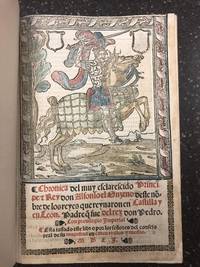 Chronica del muy esclarescido Princi
pe z Rey don Alfonso el Onzeno deste nõ
bre de los reyes que reynaron en Castilla y
en Leon. Padre q̃ fue del rey don Pedro.
Con preuilegio Imperial
Esta tassado este libro por los señores del consejo
real de su magestad en
M D L J.